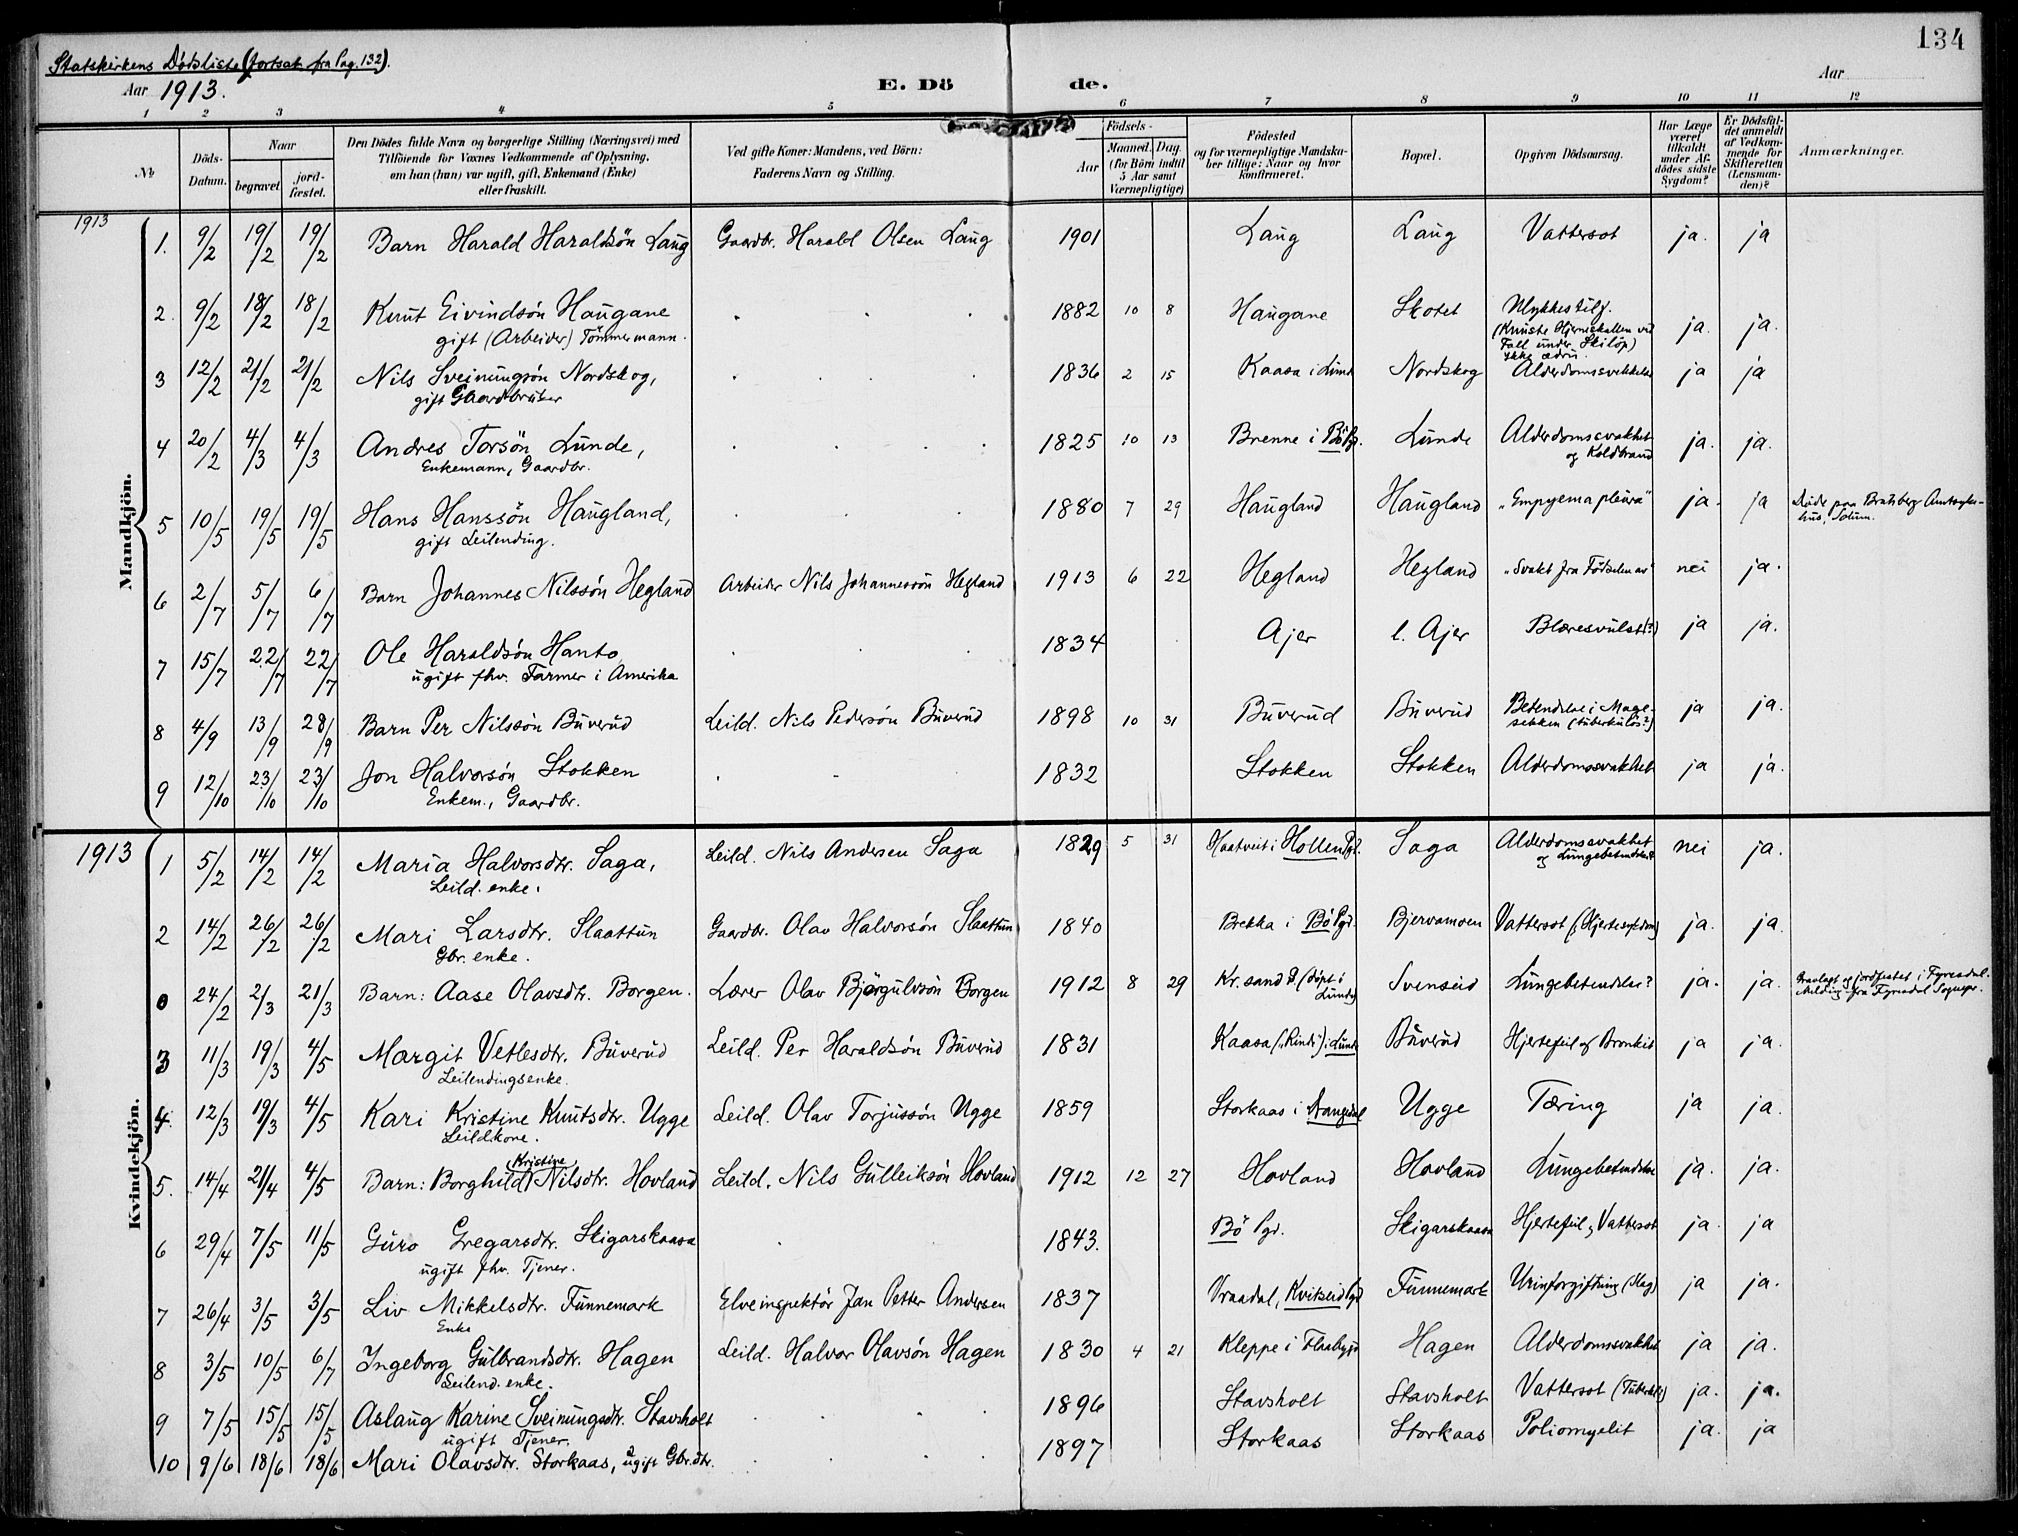 134
Statskirkens Dödsliste (fortsat fra Pag. 132).
Aar 1913.
E. Dö de.
Aar
1 2 3 4 5 6 7 8 9 10 11 12
№
Döds-Datum.
Naar
begravet.
jord-fæstet.
Den Dödes fulde Navn og borgerlige Stilling (Næringsvei) med
Tilföiende for Voxnes Vedkommende af Oplysning,
om han (hun) var ugift, gift, Enkemand (Enke)
eller fraskilt.
Ved gifte Koner: Mandens, ved Börn:
Faderens Navn og Stilling.
Födsels-
Aar
Maaned. Dag.
(for Börn indtil
5 Aar samt
Værnepligtige)
Födested
og for værnepligtige Mandska-
ber tillige: Naar og hvor
konfirmeret.
Bopæl.
Opgiven Dödsaarsag.
Har Læge
været
tilkaldt
under Af-
dödes sidste
Sygdom?
Er Dödsfal-
det anmeldt
af Vedkom-
mende for
Skifteretten
(Lensman-
den)?
Anmærkninger.
1913
Mandkjön.
1. 9/2 19/2 19/2 Barn Harald Haraldsön Laug Gaardbr. Harald Olsen Laug 1901 Laug Laug Vattersot ja. ja
2. 9/2 18/2 18/2 Knut Eivindsön Haugane 1882 10 8 Haugane Skotet Ulykkestilf. ja. ja.
gift (Arbeider) Tömmermann.
(Knuste Hjerneskallen ved
Fall under Skilöp)
Ikke ædru.
3 12/2 21/2 21/2 Nils Sveinungsön Nordskog, 1836 2 15 Kaasa i Lunde Nordskog Alderdomssvakkelse ja ja
gift Gaardbruker
4 20/2 4/3 4/3 Andres Torsön Lunde, 1825 10 13 Brenne i Bö Pgd. Lunde Alderdomssvakhet ja. ja.
Enkemann, Gaardbr.
og Koldbrand
5 10/5 19/5 19/5 Hans Hanssön Haugland, 1880 7 29 Haugland Haugland "Empyema pleura" ja. ja Döde paa Bratsberg Amtssyke-
gift Leilending.
hus, Solum.
6 2/7 5/7 6/7 Barn Johannes Nilssön Hegland Arbeider Nils Johannessön Hegland 1913 6 22 Hegland Hegland "Svakt fra Födselen av" nei ja.
7 15/7 22/7 22/7 Ole Haraldsön Hanto 1834 Ajer l. Ajer Blæresvulst(?) ja ja.
ugift fhv. Farmer i Amerika
8 4/9 13/9 28/9 Barn Per Nilssön Buverud Leild. Nils Pedersön Buverud 1898 10 31 Buverud Buverud Betendelse i Mage- ja ja.
sekken (tuberkulös?)
9 12/10 23/10 23/10 Jon Halvorsön Stokken 1832 Stokken Stokken Alderdomssvakhet ja ja.
Enkem., Gaardbr.
1913
Kvindekjön.
1 5/2 14/2 14/2 Maria Halvorsdtr. Saga, Leild. Nils Andersen Saga 1829 5 31 Haatveit i Hollen Pgd. Saga Alderdomssvakhet nei ja.
Leild. enke.
og Lungebetendelse?
2 14/2 26/2 26/2 Mari Larsdtr. Slaattun Gaardbr. Olav Halvorsön Slaattun 1840 Brekka i Bö Pgd. Bjervamoen Vattersot (Hjertesykdom) ja. ja.
Gbr. enke.
0 24/2 2/3 21/3 Barn: Aase Olavsdtr. Borgen. Lærer Olav Björgulvsön Borgen 1912 8 29 Kr.sand D. (döpt i Lunde) Svenseid Lungebetendelse? ja. ja. Gravlagt og jordfestet i Fyresdal.
Melding fra Fyresdal Sognepr.
3 11/3 19/3 4/5 Margit Vetlesdtr. Buverud Leild. Per Haraldsön Buverud 1831 Kaasa ("Rindi") i Lunde Buverud Hjertefeil og Bronkit ja ja.
Leilendingsenke.
4. 12/3 19/3 4/5 Kari Kristine Knutsdtr. Ugge Leild. Olav Torjussön Ugge 1859 Storkaas i Drangedal Ugge Tæring ja ja.
Leildkone.
5. 14/4 21/4 4/5 Barn: Borghild Kristine Nilsdtr. Hovland Leild. Nils Gulleiksön Hovland 1912 12 27 Hovland Hovland Lungebetendelse ja. ja.
6 29/4 7/5 11/5 Guro Gregarsdtr. Skigarskaasa 1843. Bö Pgd. Skigarskaasa Hjertefeil, Vattersot ja. ja
ugift fhv. Tjener.
7 26/4 3/5 3/5 Liv Mikkelsdtr. Funnemark Elveinspektör Jan Petter Andersen 1837 Vraadal, Kvitseid Pgd Funnemark Urinforgiftning (Slag) ja ja.
Enke
8 3/5 10/5 6/7 Ingeborg Gulbrandsdtr. Hagen Leild. Halvor Olavsön Hagen 1830 4 21 Kleppe i Flaabygd Hagen Alderdomssvakhet ja ja.
Leilend. enke.
9 7/5 15/5 15/5 Aslaug Karine Sveinungsdtr. Stavsholt 1896 Stavsholt Stavsholt Vattersot (Tuberkl.) ja. ja.
ugift Tjener.
10 9/6 18/6 18/6 Mari Olavsdtr. Storkaas, ugift Gbr.dtr. 1897 Storkaas Storkaas Poliomyelit ja. ja